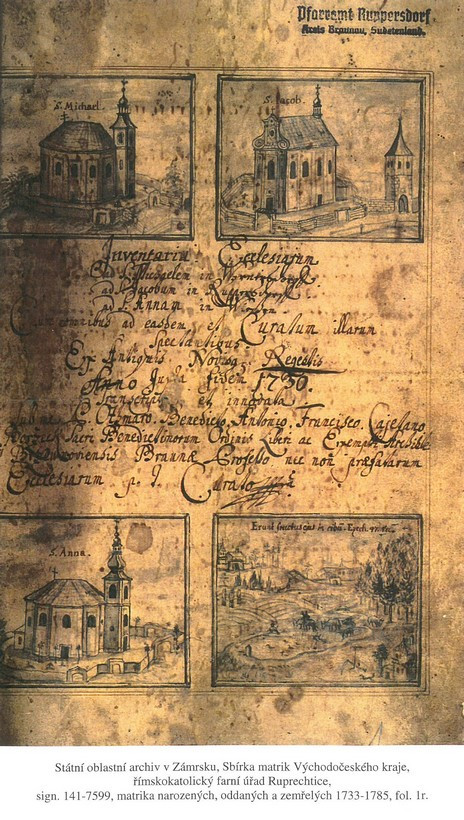 Pfarramt Ruppersdorf
Kreis Braunau, Sudetenland.
S. Michael.
S. Jacob.
Inventarium Ecclesiarum
ad S. Michaelem in
ad S. Jacobum in
ad S. Annam in
Cum omnibus ad easdem, et Curatum illarum
Spectantibus
Ex Antiquis Noviss. Regestis
Anno Juxta fidem 1730.
Transcripta et innovata
Othmaro, Benedicto, Antonio, Francisco, Cajetano
Sacri Benedictinorum Ordinis Liberi ac Exempti
Braunae Professo nec non praefatarum
Ecclesiarum p. t. Curato
S. Anna.
Erunt fructus eius in cibū. Ezech. 47.
Státní oblastní archiv v Zámrsku, Sbírka matrik Východočeského kraje,
římskokatolický farní úřad Ruprechtice,
sign. 141-7599, matrika narozených, oddaných a zemřelých 1733-1785, fol. 1r.